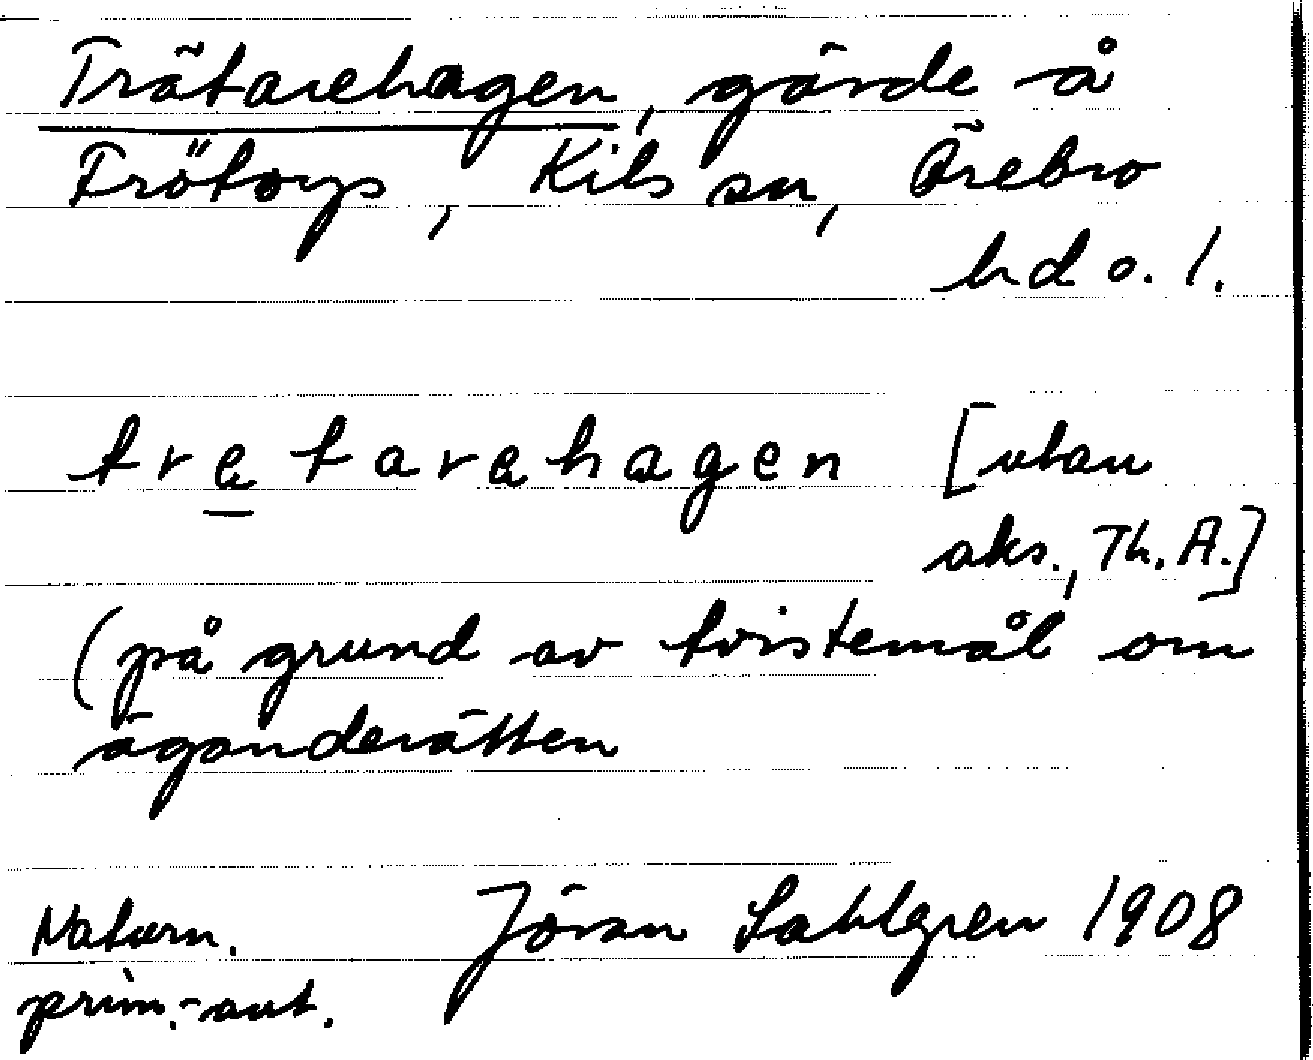 Trätarehagen, gärde å
Frötorps, Kils sn, Örebro
hd o. l.
tretarahagen [utan
aks., Th. A.]
(på grund av tvistemål om
äganderätten
Naturn. Jöran Sahlgren 1908
prim.-ant.